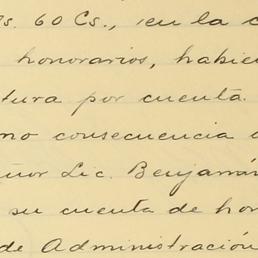 s. 60 Cs., en la c
honorarios, habien
tura por cuenta.
mo consecuencia
ñor Lic. Benjamín
su cuenta de hon
de Administración